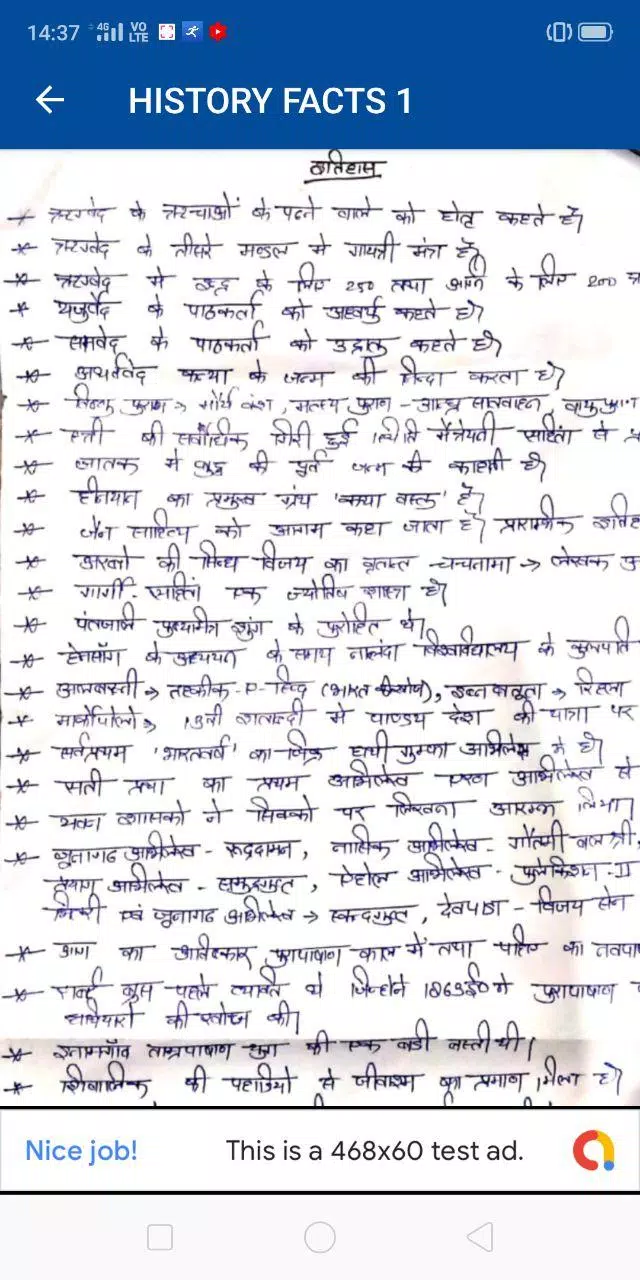 14:37 4G VO LTE
HISTORY FACTS 1
इतिहास
ऋग्वेद के ऋचाओं के पढने वाले को होतृ कहते है।
ऋग्वेद के तीसरे मण्डल मे गायत्री मंत्र है।
ऋग्वेद मे इन्द्र के लिए 250 तथा अग्नि के लिए 200
यजुर्वेद के पाठकर्ता को अध्वर्यु कहते है।
सामवेद के पाठकर्ता को उद्गातृ कहते है।
अथर्ववेद कन्या के जन्म की निन्दा करता है।
विष्णु पुराण → मौर्य वंश, मत्स्य पुराण - आन्ध्र सातवाहन, वायु पुराण
स्त्री की सर्वाधिक गिरी हुई स्थिति मैत्रेयनी संहिता से
जातक मे बुद्ध की पुर्व जन्म की कहानी है।
हीनयान का प्रमुख ग्रंथ 'कथा वस्तु' है।
जैन साहित्य को आगम कहा जाता है। प्रारम्भीक इतिह
अरबो की सिन्ध विजय का वृतान्त चचनामा → लेखक
गार्गी संहिता एक ज्योतिष शास्त्र है।
पंतजलि पुष्यमित्र शुंग के पुरोहित थे।
हेनसॉंग के अध्ययन के समय नालंदा विश्वविद्यालय के कुलपति
अलबरुनी → तहकीक-ए-हिन्द (भारत की खोज), इब्नबतूता → रिहला
मार्कोपोलो → 13वी शताब्दी मे पाण्डय देश की यात्रा पर
सर्वप्रथम 'भारतवर्ष' का जिक्र हाथी गुम्फा अभिलेख मे है।
सती प्रथा का प्रथम अभिलेख एरण अभिलेख से
यवन शासको ने सिक्को पर लिखना आरम्भ किया।
जूनागढ अभिलेख - रुद्रदामन, नासिक अभिलेख - गौतमी बलश्री,
प्रयाग अभिलेख - समुद्रगुप्त, ऐहोल अभिलेख - पुलकेशिन-II
भितरी एवं जूनागढ अभिलेख → स्कन्दगुप्त, देवपाडा - विजय सेन
आग का आविष्कार पुरापाषाण काल में तथा पहिए का नवपा
रार्बट ब्रुस पहले व्यक्ति थे जिन्होने 1863ई0 मे पुरापाषाण
हथियारो की खोज की।
इनामगॉंव ताम्रपाषाण युग की एक बडी बस्ती थी।
शिवालिक की पहाडियो से जीवाश्म का प्रमाण मिला है।
Nice job!
This is a 468x60 test ad.